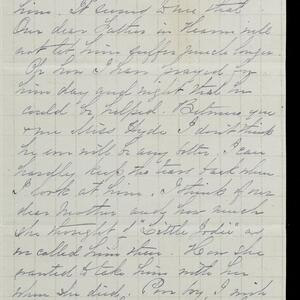 him. It seemed to me that
Our dear Father in Heaven will
not let him suffer much longer.
Oh how I have prayed for
him day and night that he
could be helped. Between you
& me Miss Hyde I don't think
he ever will be any better. I can
hardly keep the tears back when
I look at him. I think of our
dear Mother and how much
she thought of "Little Jodie" as
we called him then. How she
wanted to take him with her
when she died. Poor boy I